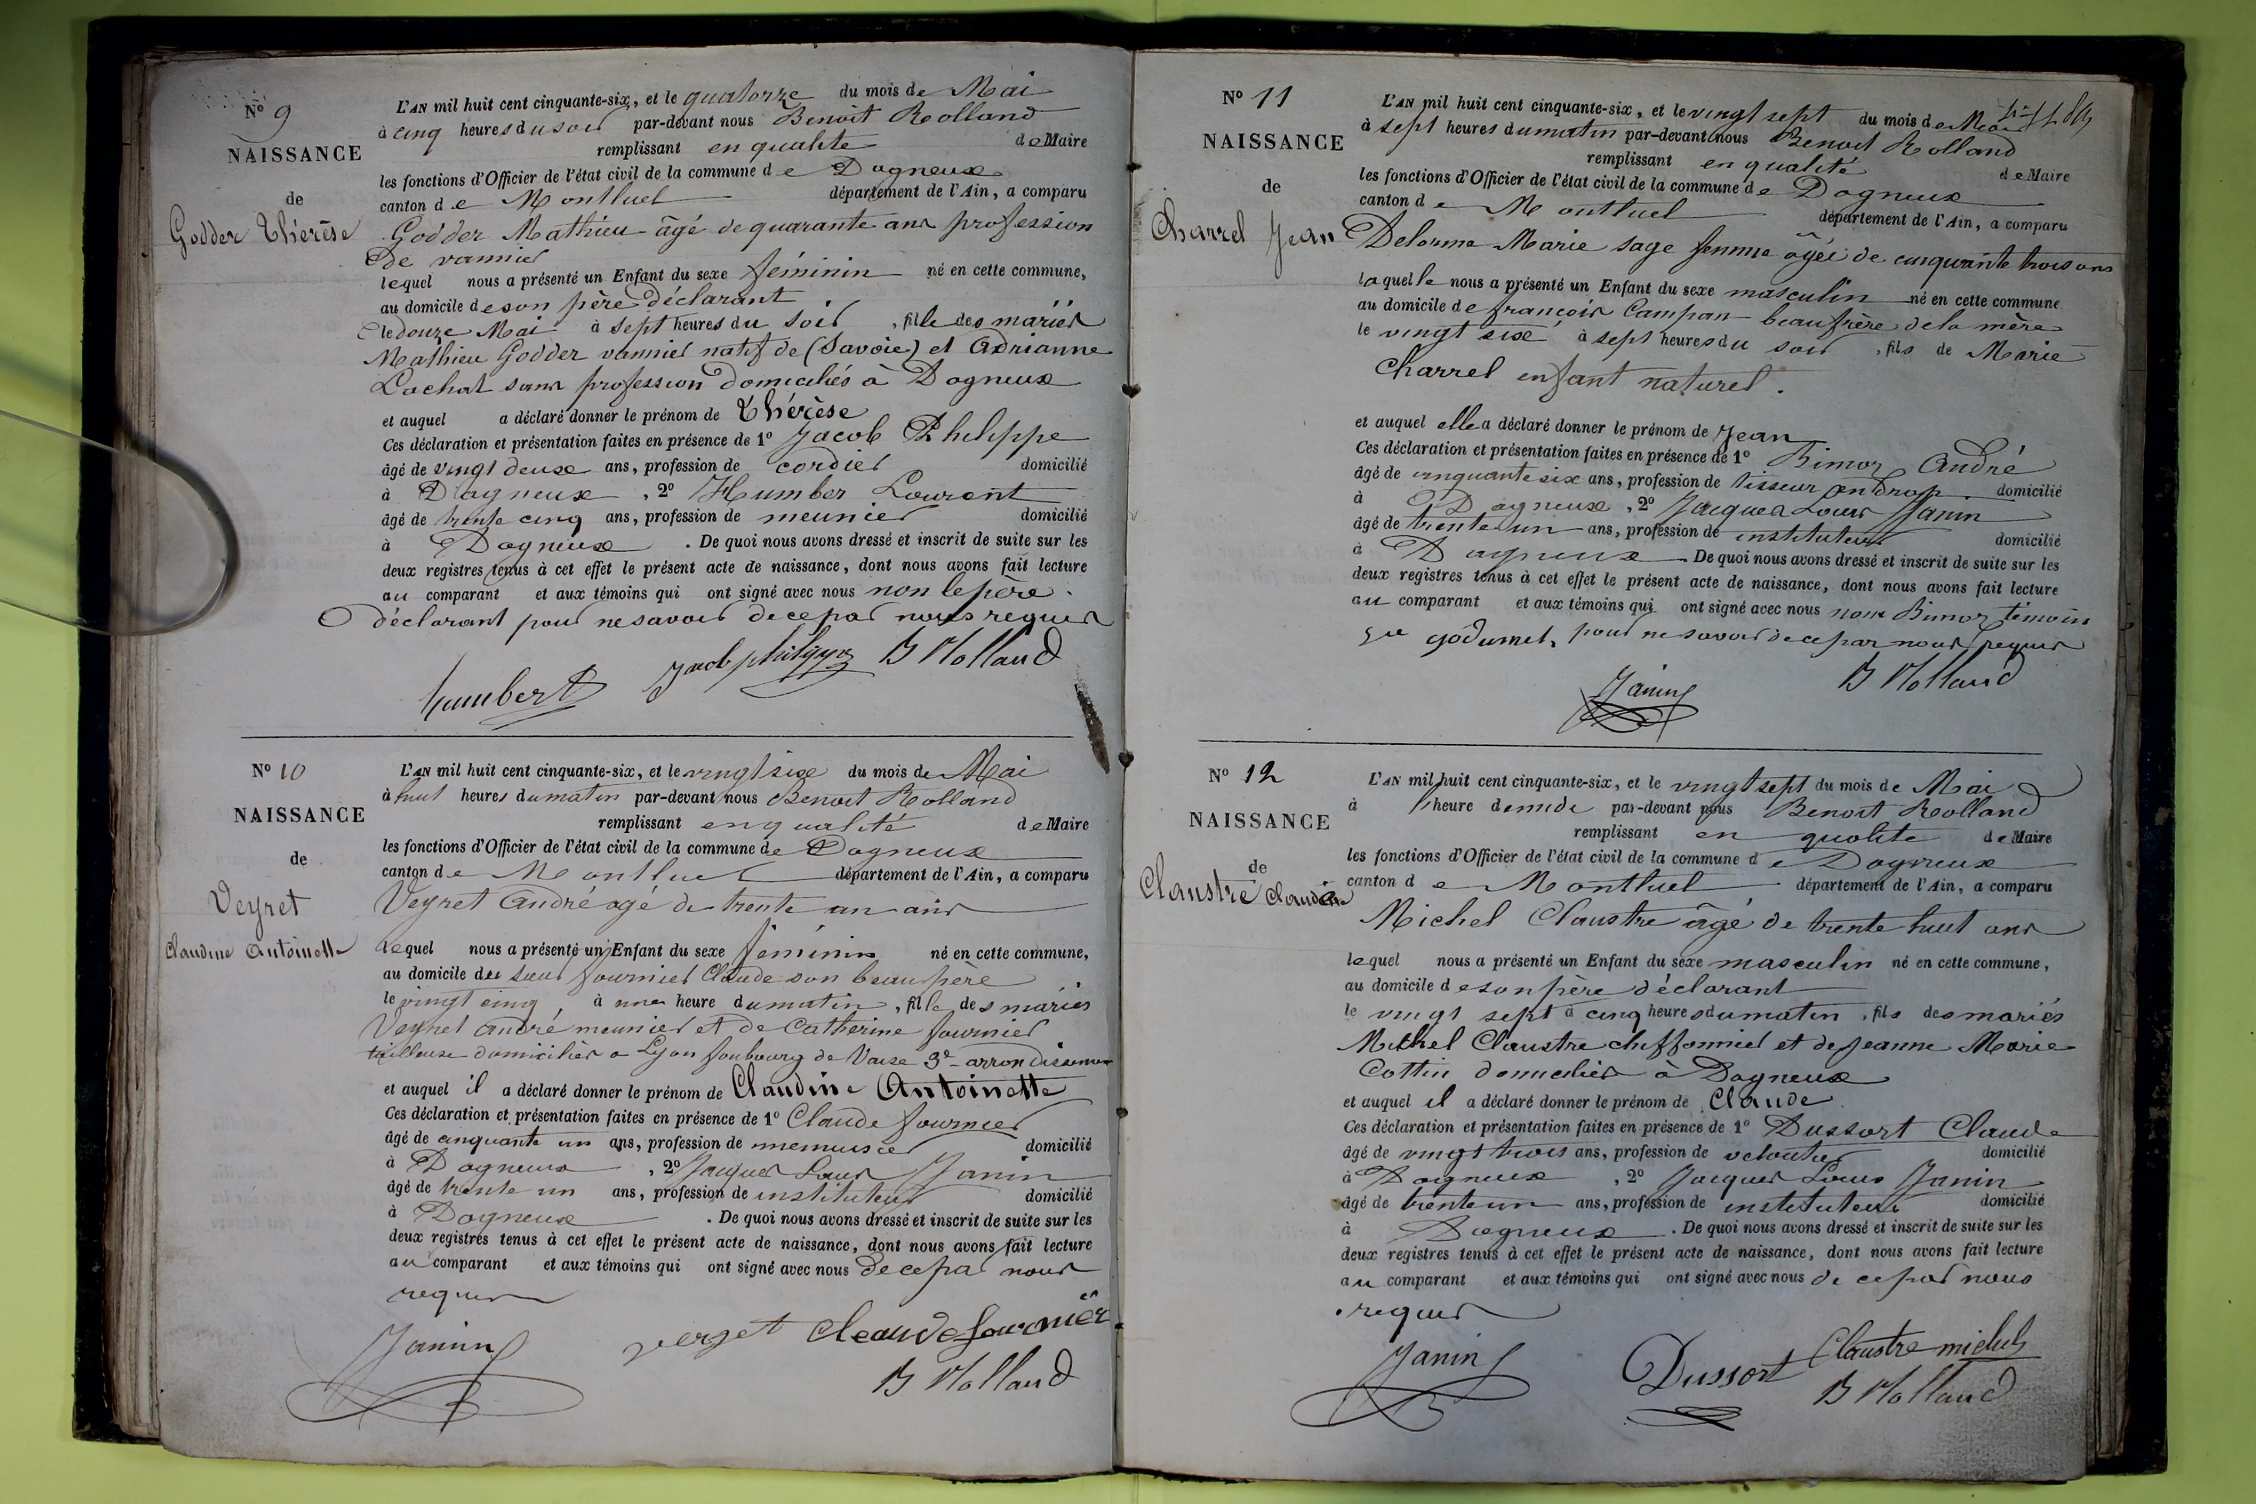 Nº 9
NAISSANCE
de
Godder Thérèse
L'AN mil huit cent cinquante-six, et le quatorze du mois de Mai
à cinq heures du soir par-devant nous Benoit Rolland
remplissant en qualité de Maire
les fonctions d'Officier de l'état civil de la commune de Dagneux
canton de Montluel département de l'Ain, a comparu
Godder Mathieu âgé de quarante ans profession
de vannier
lequel nous a présenté un Enfant du sexe féminin né en cette commune,
au domicile de son père déclarant
le douze Mai à sept heures du soir, fille des mariés
Mathieu Godder vannier natif de (Savoie) et Adrianne
Lachat sans profession domiciliés à Dagneux
et auquel a déclaré donner le prénom de Thérèse
Ces déclaration et présentation faites en présence de 1º Jacob Philippe
âgé de vingt deux ans, profession de cordier domicilié
à Dagneux, 2º Humber Laurent
âgé de trente cinq ans, profession de meunier domicilié
à Dagneux. De quoi nous avons dressé et inscrit de suite sur les
deux registres tenus à cet effet le présent acte de naissance, dont nous avons fait lecture
au comparant et aux témoins qui ont signé avec nous non le père
déclarant pour ne savoir de ce par nous requis
humbert Jacob philippe B Rolland
Nº 10
NAISSANCE
de
Veyret
Claudine Antoinette
L'AN mil huit cent cinquante-six, et le vingt six du mois de Mai
à huit heures du matin par-devant nous Benoit Rolland
remplissant en qualité de Maire
les fonctions d'Officier de l'état civil de la commune de Dagneux
canton de Montluel département de l'Ain, a comparu
Veyret André agé de trente un ans
Lequel nous a présenté un Enfant du sexe féminin né en cette commune,
au domicile du sieur fournier Claude son beau père
le vingt cinq, à une heure du matin, fille des mariés
Veyret André meunier et de Catherine fournier
tailleuse domiciliés a Lyon faubourg de Vaise 3e arrondissement
et auquel il a déclaré donner le prénom de Claudine Antoinette
Ces déclaration et présentation faites en présence de 1º Claude fournier
âgé de cinquante un ans, profession de menuisier domicilié
à Dagneux, 2º Jacques Louis Janin
âgé de trente un ans, profession de instituteur domicilié
à Dagneux. De quoi nous avons dressé et inscrit de suite sur les
deux registres tenus à cet effet le présent acte de naissance, dont nous avons fait lecture
au comparant et aux témoins qui ont signé avec nous de ce par nous
requis
Janin veyret Cleaude fournier
B Rolland
Nº 11
NAISSANCE
de
Charrel Jean
L'AN mil huit cent cinquante-six, et le vingt sept du mois de Mai
à sept heures du matin par-devant nous Benoit Rolland
remplissant en qualité de Maire
les fonctions d'Officier de l'état civil de la commune de Dagneux
canton de Montluel département de l'Ain, a comparu
Delorme Marie sage femme âgée de cinquante trois ans
laquelle nous a présenté un Enfant du sexe masculin né en cette commune
au domicile de françois Campan beau frère de la mère
le vingt six à sept heures du soir, fils de Marie
Charrel enfant naturel.
et auquel elle a déclaré donner le prénom de Jean
Ces déclaration et présentation faites en présence de 1º Bimoz André
âgé de cinquante six ans, profession de tisseur en drap domicilié
à Dagneux, 2º Jacques Louis Janin
âgé de trente un ans, profession de instituteur domicilié
à Dagneux De quoi nous avons dressé et inscrit de suite sur les
deux registres tenus à cet effet le présent acte de naissance, dont nous avons fait lecture
au comparant et aux témoins qui ont signé avec nous non Bimoz témoin
pour ne savoir de ce par nous requis
Janin B Rolland
Nº 12
NAISSANCE
de
Claustre Claude
L'AN mil huit cent cinquante-six, et le vingt sept du mois de Mai
à heure de midi par-devant nous Benoit Rolland
remplissant en qualité de Maire
les fonctions d'Officier de l'état civil de la commune de Dagneux
canton de Montluel département de l'Ain, a comparu
Michel Claustre âgé de trente huit ans
lequel nous a présenté un Enfant du sexe masculin né en cette commune,
au domicile de son père déclarant
le vingt sept à cinq heures du matin, fils des mariés
Michel Claustre chiffonnier et de Jeanne Marie
Cottin domiciliés à Dagneux
et auquel il a déclaré donner le prénom de Claude
Ces déclaration et présentation faites en présence de 1º Dussort Claude
âgé de vingt trois ans, profession de veloutier domicilié
à Dagneux, 2º Jacques Louis Janin
âgé de trente un ans, profession de instituteur domicilié
à Dagneux. De quoi nous avons dressé et inscrit de suite sur les
deux registres tenus à cet effet le présent acte de naissance, dont nous avons fait lecture
au comparant et aux témoins qui ont signé avec nous de ce par nous
requis
Janin Dussort Claustre michel
B Rolland